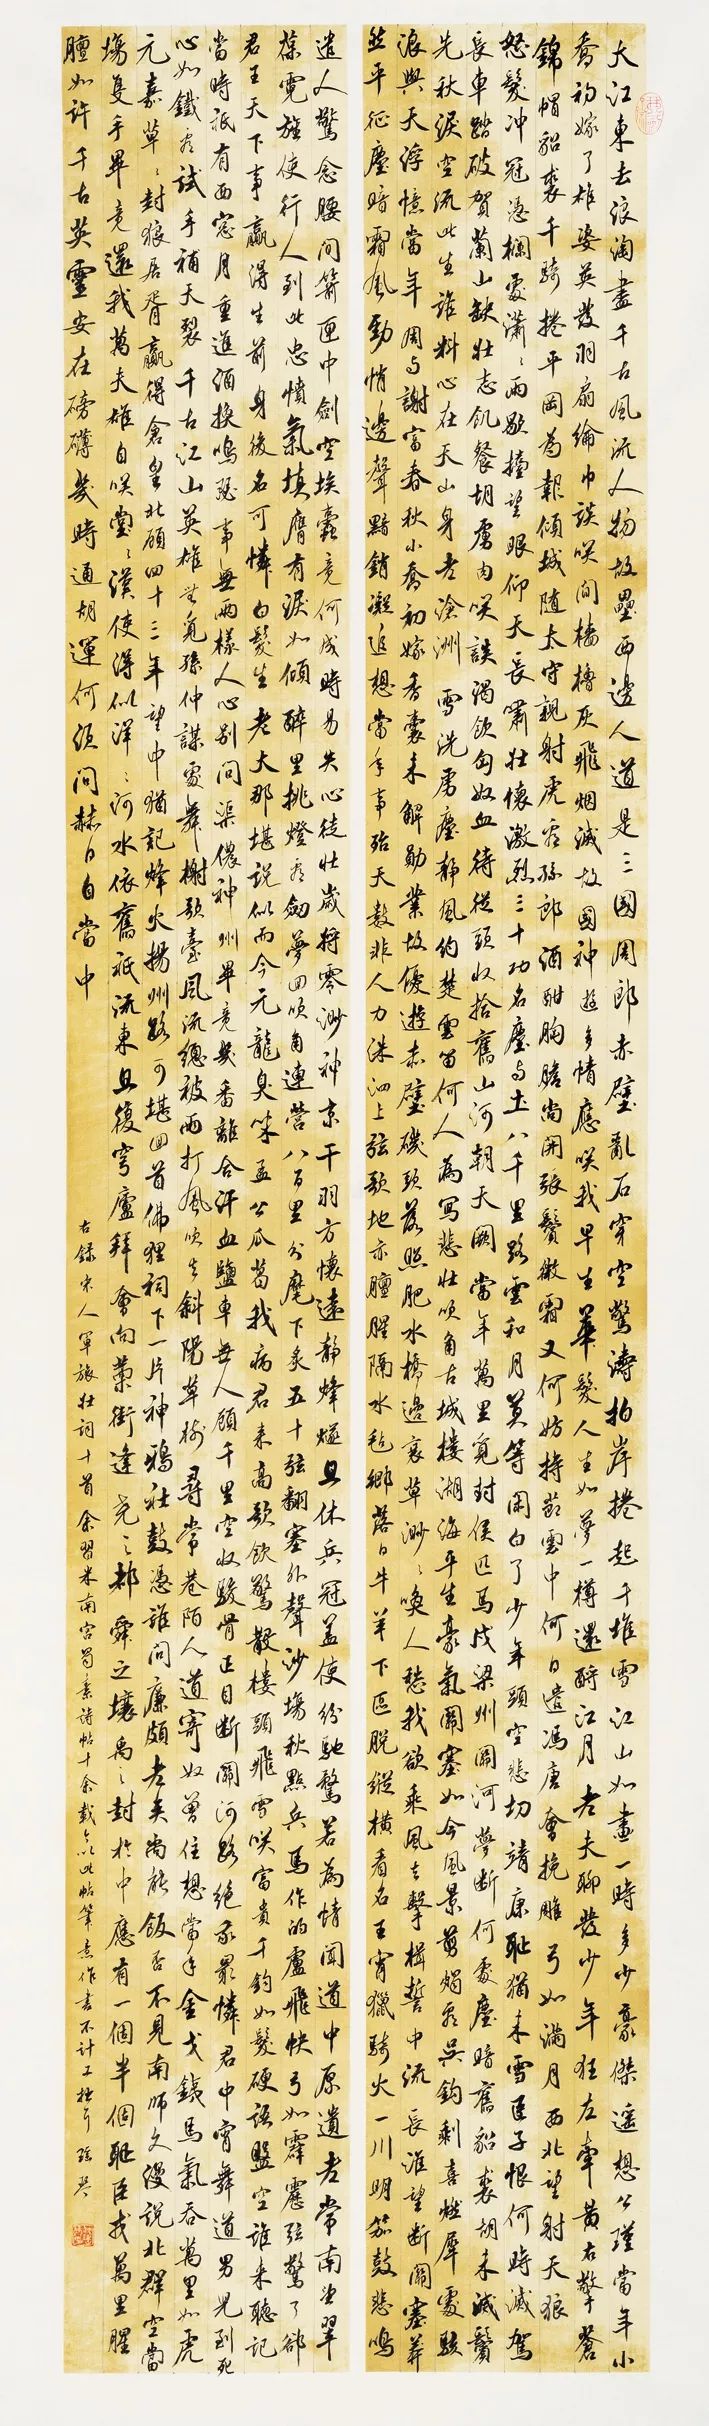 大江東去浪淘盡千古風流人物故壘西邊人道是三國周郎赤壁亂石穿空驚濤拍岸捲起千堆雪江山如畫一時多少豪傑遙想公瑾當年小
喬初嫁了雄姿英發羽扇綸巾談笑間檣櫓灰飛烟滅故國神遊多情應笑我早生華髮人生如夢一樽還酹江月 老夫聊發少年狂左牽黃右擎蒼
錦帽貂裘千騎捲平岡為報傾城随太守親射虎看孫郎酒酣胸膽尚開張鬢微霜又何妨持節雲中何日遣馮唐會挽雕弓如滿月西北望射天狼
怒髮冲冠憑欄處瀟〻雨歇擡望眼仰天長嘯壯懷激烈三十功名塵與土八千里路雲和月莫等閒白了少年頭空悲切靖康耻猶未雪臣子恨何時滅駕
長車踏破賀蘭山缺壯志飢餐胡虜肉笑談渴飲匈奴血待從頭收拾舊山河朝天闕 當年萬里覓封侯匹馬戍梁州關河夢斷何處塵暗舊貂裘胡未滅鬢
先秋淚空流此生誰料心在天山身老滄洲 雪洗虜塵靜風約楚雲留何人為寫悲壯吹角古城樓湖海平生豪氣關塞如今風景剪燭看吳鉤剩喜燃犀處駭
浪與天浮憶當年周與謝富春秋小喬初嫁香囊未解勛業故優遊赤壁磯頭落照肥水橋邊衰草渺〻喚人愁我欲乘風去擊楫誓中流 長淮望斷關塞莽
然平征塵暗霜風勁悄邊聲黯銷凝追想當年事殆天數非人力洙泗上弦歌地亦膻腥隔水氈鄉落日牛羊下區脫縱橫看名王宵獵騎火一川明笳鼓悲鳴
遣人驚念腰間箭匣中劍空埃蠹竟何成時易失心徒壯歲將零渺神京干羽方懷遠靜烽燧且休兵冠蓋使紛馳騖若為情聞道中原遺老常南望翠
葆霓旌使行人到此忠憤氣填膺有淚如傾 醉里挑燈看劍夢回吹角連營八百里分麾下炙五十弦翻塞外聲沙場秋點兵馬作的盧飛快弓如霹靂弦驚了卻
君王天下事贏得生前身後名可憐白髮生 老大那堪說似而今元龍臭味孟公瓜葛我病君來高歌飲驚散樓頭飛雪笑富貴千鈞如髮硬語盤空誰來聽記
當時祇有西窗月重進酒換鳴瑟事無兩樣人心別問渠儂神州畢竟幾番離合汗血鹽車無人顧千里空收駿骨正目斷關河路絕我最憐君中宵舞道男兒到死
心如鐵看試手補天裂 千古江山英雄無覓孫仲謀處舞榭歌臺風流總被雨打風吹去斜陽草樹 尋常巷陌人道寄奴曾住想當年金戈鐵馬氣吞萬里如虎
元嘉草〻封狼居胥贏得倉皇北顧四十三年望中猶記烽火揚州路可堪回首佛狸祠下一片神鴉社鼓憑誰問廉頗老矣尚能飯否 不見南師久漫說北群空當
場隻手畢竟還我萬夫雄自笑堂〻漢使得似洋〻河水依舊祇流東且復穹廬拜會向藁街逢堯之都舜之壤禹之封於中應有一個半個耻臣戎萬里腥
膻如許千古英靈安在磅礴幾時通胡運何須問赫日自當中
右錄宋人軍旅壯詞十首余習米南宮蜀素詩帖十余載今以此帖筆意作書不計工拙耳